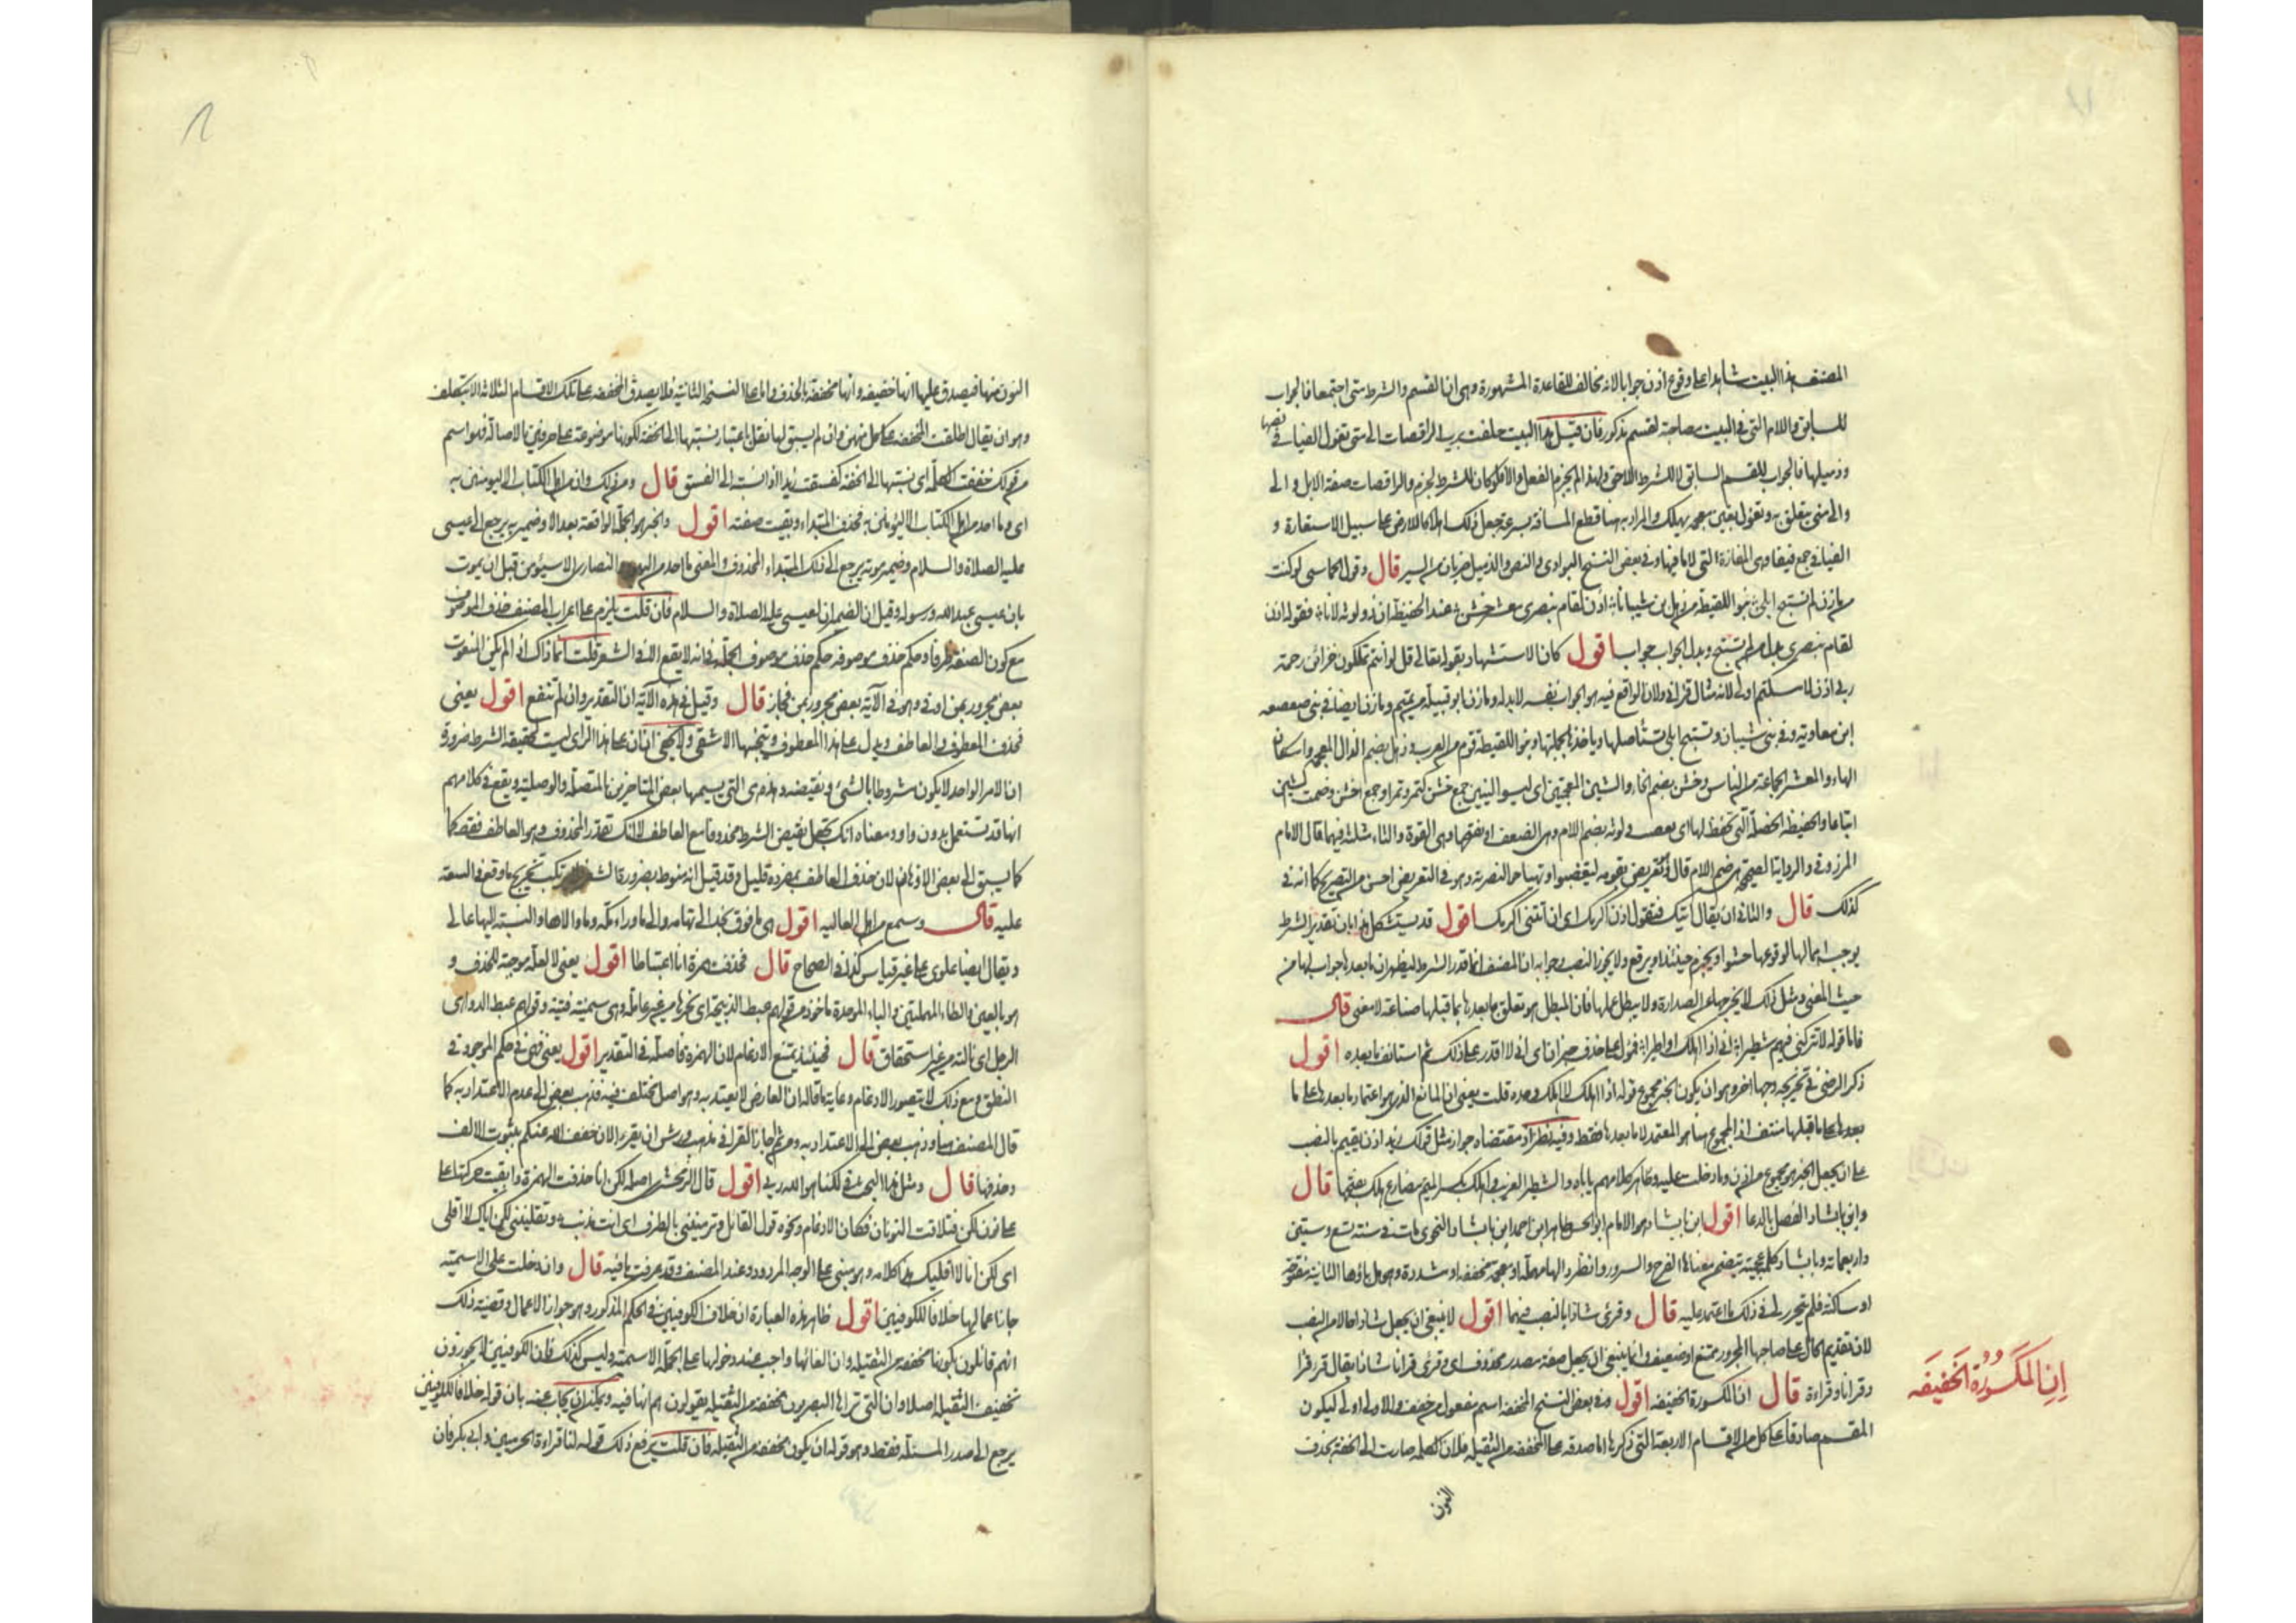 المصنف هذا البيت شاهدا على وقوع اذن جوابا لانه مخالف للقاعدة المشهورة وهى ان القسم والشرط متى اجتمعا فالجواب
للسابق واللام التى فى البيت صاحبة لقسم مذكور فان قبل هذا البيت حلفت برب الراقصات الى منى تغول الفيافى نصها
وذميلها فالجواب للقسم السابق لا للشرط اللاحق ولهذا لم يجزم الفعل والا فلو كان للشرط لجزم والراقصات صفة الابل والى
والى منى متعلق به وتغول بغين معجمة يهلك والمراد به هنا قطع المسافة بسرعة جعل ذلك اهلاكا للارض على سبيل الاستعارة و
الفيافى جمع فيفا وهى المفازة التى لا ما فيها وفى بعض النسخ البوادى والنص والذميل ضربان من السير قال وقول الحماسى لو كنت
من مازن لم تستبح ابلى بنو اللقيطة من ذهل بن شيبانا اذن لقام بنصرى معشر خشن عند الحفيظة ان ذو لوثة لانا فقوله اذن
لقام بنصرى بدل من لم تستبح وبدل الجواب جواب اقول كان الاستشهاد بقوله تعالى قل لو انتم تملكون خزائن رحمة
ربى اذن لامسكتم اولى لانه مثال قرانى ولان الواقع فيه هو الجواب نفسه لا بدله ومازن ابو قبيلة من تميم ومازن ايضا فى بنى صعصعه
ابن معاوية وفى بنى شيبان وتستبح ابلى تستأصلها وياخذها بجملتها وبنو اللقيطة قوم من العرب وذهل بضم الذال المعجمة واسكان
الهاء والمعشر الجماعة من الناس وخشن بضم الخاء والشين المعجمتين اى ليسوا لينين جمع خشن كنمر ونمر او جمع اخشن وضمت الشين
اتباعا والحفيظه الخصلة التى تحفظ لها اى يغضب ولوثه بضم اللام وهى الضعف او بفتحها وهى القوة والثاء مثلثة فيهما قال الامام
المرزوقى والرواية الصحيحة هى ضم اللام قال وفيه تعريض بقومه ليغضبوا او تهتاجوا لنصرته وهو فى التعريض احسن من التصريح كما انه فى
كذلك قال والثانى ان يقال آتيك فتقول اذن اكرمك اى ان اتيتنى اكرمك اقول قد يستشكل هذا بان تقدير الشرط
يوجب اهمالها لوقوعها حشوا ويجزم حينئذ او يرفع ولا يجوز النصب وجوابه ان المصنف انما قدر الشرط ليظهر ان ما بعدها جواب لها من
حيث المعنى ومثل ذلك لا يخرجها عن الصدارة ولا يبطل عملها فان المبطل هو تعلق ما بعدها بما قبلها صناعة لا معنى قال
فاما قوله لا تتركنى فيهم شطيرا انى اذا اهلك او اطيرا فمؤول على حذف خبر ان اى انى لا اقدر على ذلك ثم استانف ما بعده اقول
ذكر الرضى فى تخريجه وجها اخر وهو ان يكون الخبر مجموع قوله اذا اهلك لا اهلك وحده قلت يعنى ان المانع الذى هو اعتماد ما بعدها على ما
بعدها على ما قبلها منتف اذ المجموع هنا هو المعتمد لا ما بعدها فقط وفيه نظر اذ مقتضاه جواز مثل قولك زيد اذن يقيم بالنصب
على ان يجعل الخبر هو مجموع من اذن وما دخلت عليه وظاهر كلامهم يأباه والشطير الغريب واهلك بكسر اللام مضارع هلك بفتحها قال
وابن بابشاذ الفصل بالدعا اقول ابن بابشاذ هو الامام ابو الحسن طاهر ابن احمد ابن بابشاذ النحوى مات فى سنة تسع وستين
واربعمائة وبابشاذ كلمة عجمية يتضمن معناها الفرح والسرور وانظر دالها مهملة او معجمة مخففه او مشددة وهل باؤها الثانية مفتوحة
او ساكنة فلم يتحرر لى فى ذلك ما اعتمد عليه قال وقرئ شاذا بالنصب فيهما اقول لا ينبغى ان يجعل شاذا حالا من النصب
لان تقديم الحال على صاحبها المجرور ممتنع او ضعيف وانما ينبغى ان يجعل صفة مصدر محذوف اى وقرئ قرانا شاذا يقال قرا قرا
وقرانا وقراءة قال ان المكسورة الخفيفة اقول وفى بعض النسخ المخففه اسم مفعول من خفف والاولى اولى ليكون
المقسم صادقا على كل من الاقسام الاربعة التى ذكرها اما صدقه على المخففه من الثقيلة فلان الكلمة صارت الى الخفة بحذف
النون
اِن المَكسُورُة الخَفيفَه
النون منها فيصدق عليها انها خفيفه وانها مخففة بالحذف واما على النسخة الثانية فلا يصدق المخففه على تلك الاقسام الثلاثة الا بتكلف
وهو ان يقال اطلقت المخففه على كل منهن وان لم يسبق لها ثقل باعتبار نسبتها الى الخفة لكونها موضوعة على حرفين بالاصالة فهو اسم
من قولك خففت الكلمة اى نسبتها الى الخفة كفسقت زيدا اذا نسبته الى الفسق قال ومن ذلك وان من اهل الكتاب الا ليومنن به
اى وما احد من اهل الكتاب الا ليؤمنن به فحذف المبتداء وبقيت صفته اقول والخبر هو الجملة الواقعة بعد الا وضمير به يرجع الى عيسى
عليه الصلاة والسلام وضمير موته يرجع الى ذلك المبتداء المحذوف والمعنى ما احد من اليهود والنصارى الا سيؤمن قبل ان يموت
بان عيسى عبد الله ورسوله وقيل ان الضميران لعيسى عليه الصلاة والسلام فان قلت يلزم على اعراب المصنف حذف الموصوف
مع كون الصفة ظرفا وحكم حذف موصوفه حكم حذف موصوف الجملة فى انه لا يقع الا فى الشعر قلت انما ذاك اذا لم يكن المنعوت
بعض مجرور بمن او فى وهو فى الآية بعض مجرور بمن فجاز قال وقيل فى هذه الآية ان التقدير وان لم تنفع اقول يعنى
فحذف المعطوف والعاطف ويدل على هذا المعطوف ويتجنبها الاشقى والحق ان ان على هذا الراى ليست لحقيقة الشرط ضرورة
ان الامر الواحد لا يكون مشروطا بالشئ ونقيضه وهذه هى التى يسميها بعض المتاخرين بالمتصلة والوصلية ويقع فى كلامهم
انها قد تستعمل بدون واو ومعناه انك تجعل نقيض الشرط محذوفا مع العاطف لا انك تقدر المحذوف وهو العاطف فقط كما
كما يسبق الى بعض الاذهان لان حذف العاطف بمفرده قليل وقد قيل انه منوط بضرورة الشعر فلا يرتكب تخريج ما وقع فى السعة
عليه قال وسمع من اهل العاليه اقول هى ما فوق نجد الى تهامه والى ما وراء مكة وما والاها والنسبة اليها عالى
ويقال ايضا علوى على غير قياس كذا فى الصحاح قال فحذفت همزة انا اعتباطا اقول يعنى لا لعلة موجبة للحذف و
هو بالعين والطاء المهملتين والباء الموحدة ماخوذ من قولهم عبط الذبيحة اى نحرها من غير علة وهى سمينة فتية وقولهم عبطت الدواهى
الرجل اى نالته من غير استحقاق قال فحينئذ يمتنع الادغام لان الهمزة فاصلة فى التقدير اقول يعنى فهى فى حكم الموجود فى
النطق ومع ذلك لا يتصور الادغام وغاية ما قاله ان العارض لا يعتد به وهو اصل مختلف فيه فذهب بعض الى عدم الاعتداد به كما
قال المصنف هنا وذهب بعض الى الاعتداد به ومن ثم اجاز القرا فى مذهب ورش ان يقرء الان خفف الله عنكم بثبوت الالف
وحذفها قال ومثل هذا البحث فى لكنا هو الله ربى اقول قال الزمخشرى اصله لكن انا حذفت الهمزة وابقيت حركتها على
على نون لكن فتلاقت النونان فكان الادغام ونحوه قول القائل وترميننى بالطرف اى انت مذنب وتقليننى لكن اياك لا اقلى
اى لكن انا لا اقليك هذا كلامه وهو مبنى على الوجه المردود عند المصنف وقد عرفت ما فيه قال وان دخلت على الاسمية
جاز اعمالها خلافا للكوفيين اقول ظاهر هذه العبارة ان خلاف الكوفيين فى الحكم المذكور وهو جواز الاعمال وقضية ذلك
انهم قائلون بكونها مخففه من الثقيلة وان الغائها واجب عند دخولها على الجملة الاسمية وليس كذلك فان الكوفيين لا يجوزون
تخفيف الثقيلة اصلا وان التى تراها البصريون مخففة من الثقيلة يقولون هم انها نافيه ويمكن ان يجاب عنه بان قوله خلافا للكوفيين
يرجع الى صدر المسئلة فقط وهو قوله ان يكون مخففه من الثقيلة فان قلت يرفع ذلك قوله لنا قراءة الحرميين وابى بكر فان